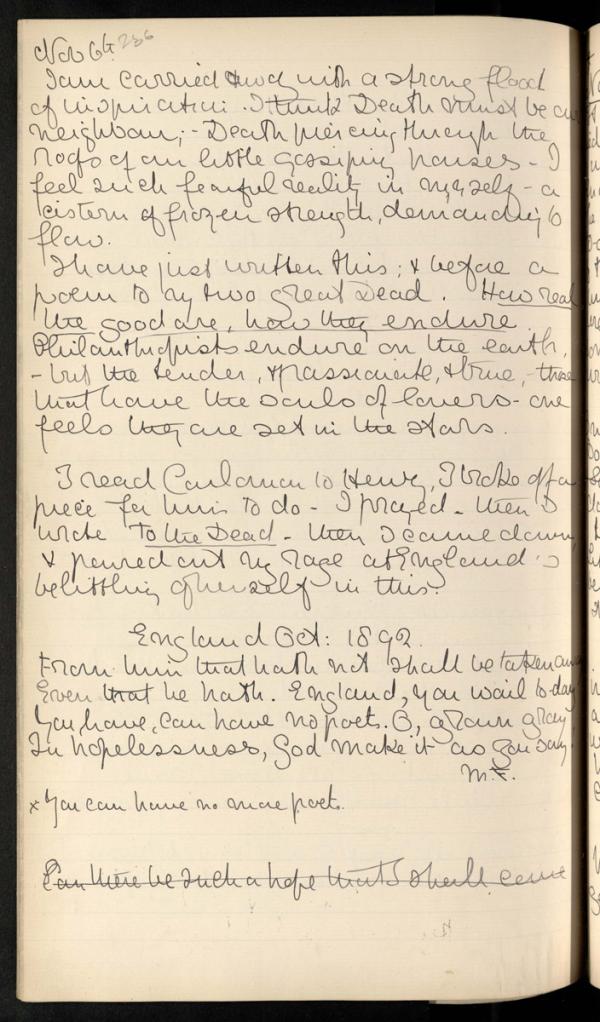 Nov 6th 256
I am carried away with a strong flood
of inspiration. I think Death must be our
neighbour; - Death piercing through the
roofs of our little gossiping houses - I
feel such fearful reality in myself - a
cistern of frozen strength, demanding to
flow.
I have just written this; & before a
poem to my two great Dead. How real
the good are, how they endure.
Philanthropists endure on the earth,
- but the tender, & passionate, & true, - those
that have the souls of lovers - one
feels they are set in the stars.
I read Carloman to Henry, I broke off a
piece for him to do - I prayed - then I
wrote To the Dead - then I came down
& poured out my rage at England's
belittling of herself in this.
England Oct: 1892.
From him that hath not shall be taken away
Even that he hath. England, you wail to-day
You have, can have no poets. O, grown gray
In hopelessness, God make it as you say.
M.F.
x You can have no more poets.
Can there be such a hope that I shall come